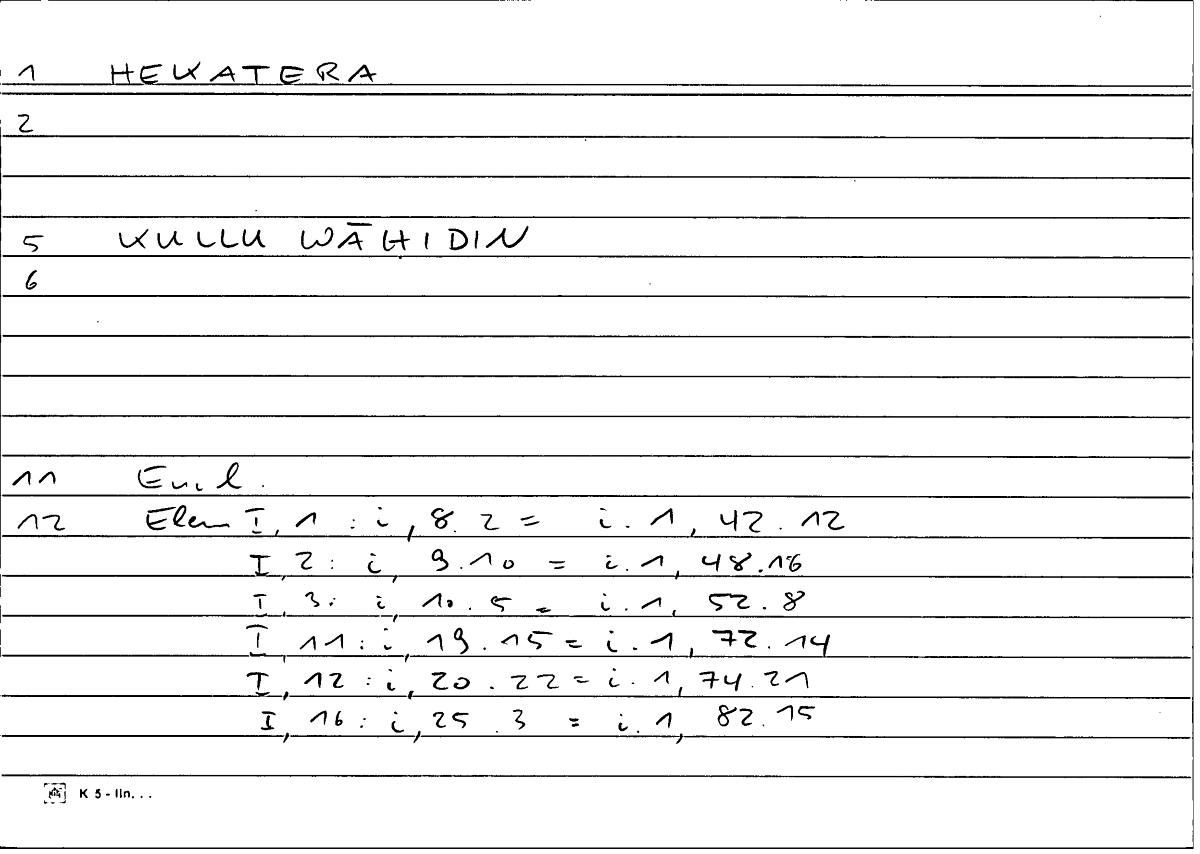 1 HEKATERA
2
5 KULLU WĀḤIDIN
6
11 Eucl.
12 Elem I, 1 : i, 8.2 = i.1, 42.12
I, 2 : i, 9.10 = i.1, 48.16
I, 3 : i, 10.5 = i.1, 52.8
I, 11 : i, 19.15 = i.1, 72.14
I, 12 : i, 20.22 = i.1, 74.21
I, 16 : i, 25.3 = i.1, 82.15
K 5 - lin. . .